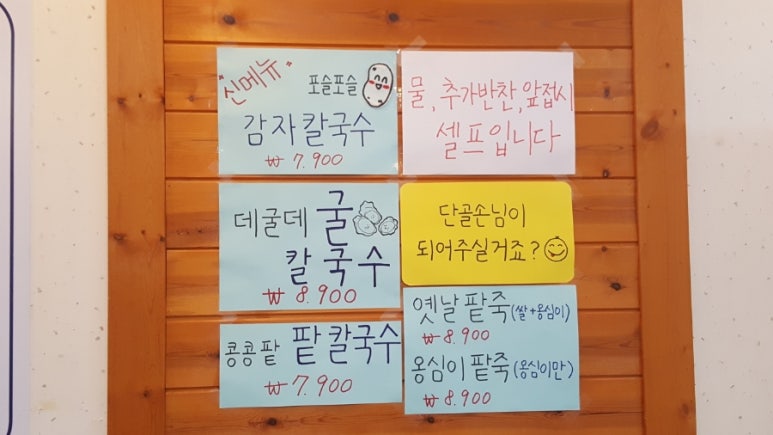 신메뉴
포슬포슬
감자칼국수
₩7.900
데굴데 굴
칼국수
₩8.900
콩콩팥 팥칼국수
₩7.900
물, 추가반찬, 앞접시
셀프입니다
단골손님이
되어주실거죠?
옛날팥죽(쌀+옹심이)
₩8.900
옹심이팥죽(옹심이만)
₩8.900